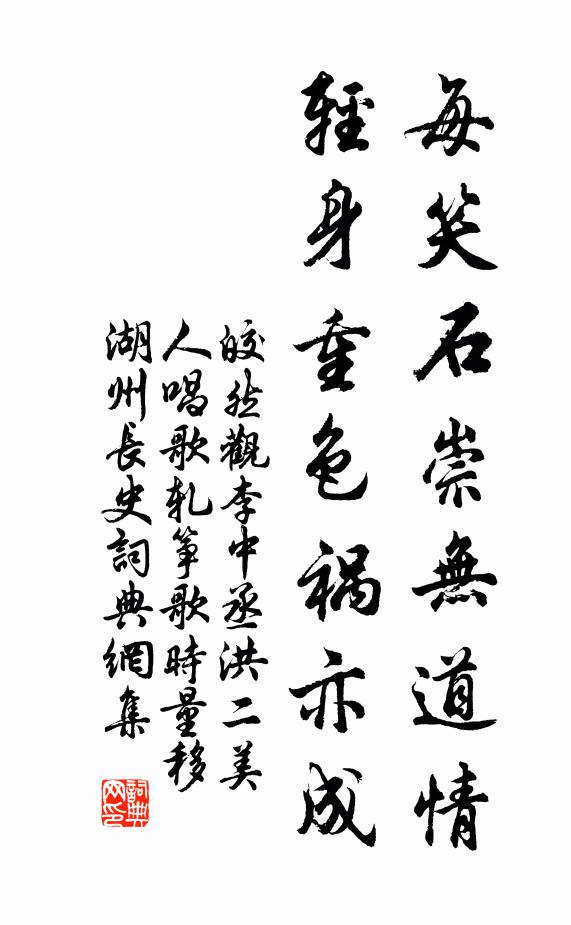 每笑石崇無道情
輕身重色禍亦成
皎然觀李中丞洪二美
人唱歌軋箏歌時量移
湖州長史詞典網集
詞典網印